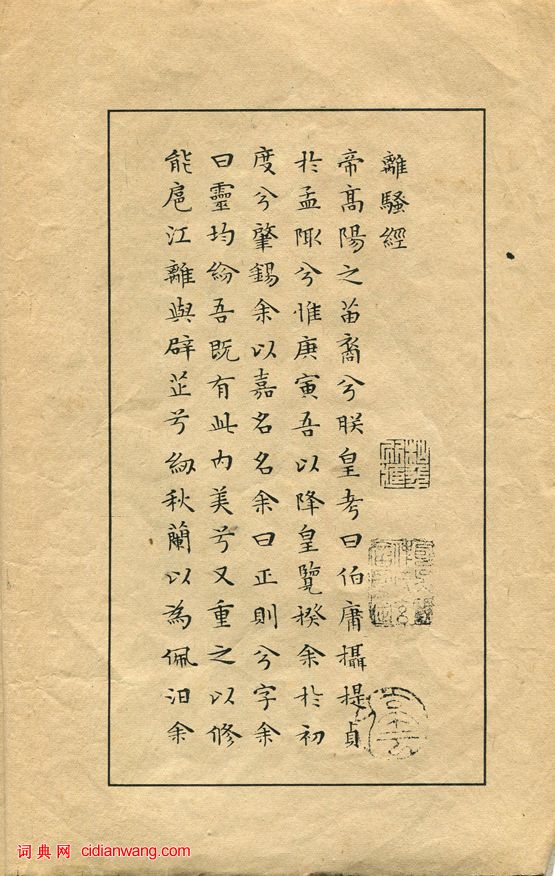 離騷經
帝髙陽之苗裔兮朕皇考曰伯庸攝提貞
於孟陬兮惟庚寅吾以降皇覽揆余於初
度兮肇錫余以嘉名名余曰正則兮字余
曰靈均紛吾既有此内美兮又重之以修
能扈江離與辟芷兮紉秋蘭以為佩汨余
词典网 cidianwang.com